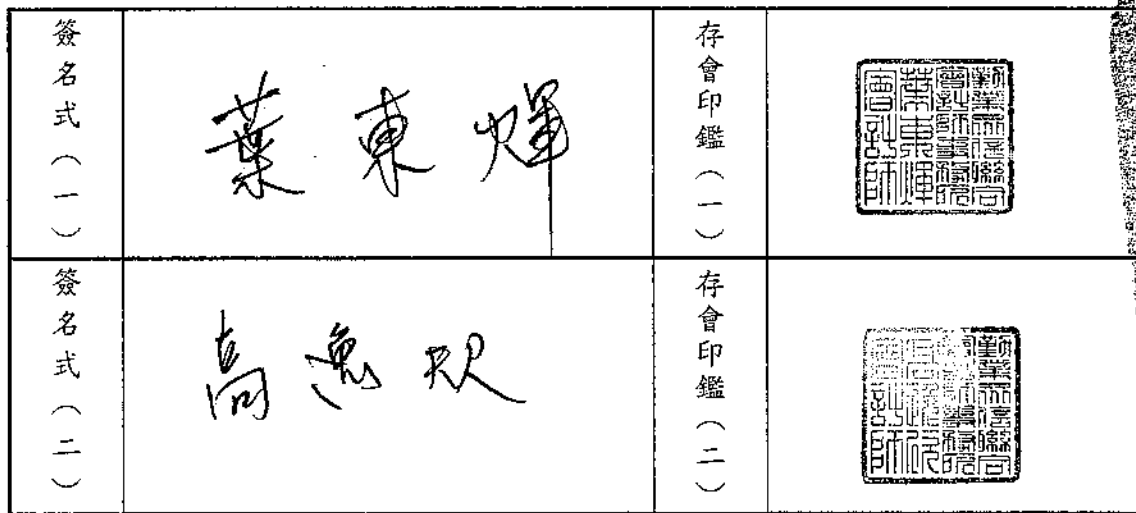 簽名式（一）
葉東輝
存會印鑑（一）
勤業眾信聯合
會計師事務所
葉東煇
會計師
簽名式（二）
存會印鑑（二）
勤業眾信聯合
會計師事務所
會計師